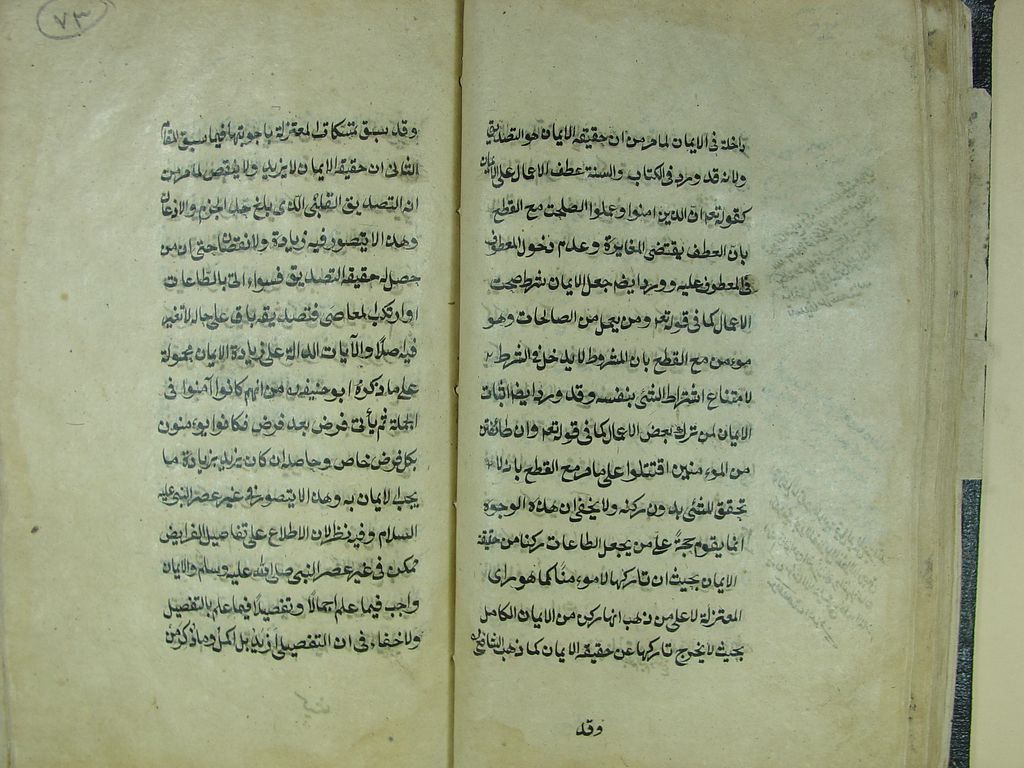 داخلة فى الايمان لما مر من ان حقيقة الايمان هو التصديق
ولانه قد ورد فى الكتاب والسنة عطف الاعمال على الايمان
كقوله تعـ ان الذين امنوا وعملوا الصلحت مع القطع
بان العطف يقتضى المغايرة وعدم دخول المعطوف
فى المعطوف عليه وورد ايضـ جعل الايمان شرط صحت
الاعمال كما فى قوله تعـ ومن يعمل من الصالحات وهو
موءمن مع القطع بان المشروط لا يدخل فى الشرط
لامتناع اشتراط الشئ بنفسه وقد ورد ايضـ اثبات
الايمان لمن ترك بعض الاعمال كما فى قوله تعـ وان طائفتن
من الموءمنين اقتتلوا على ما مر مع القطع بانه لا
تحقق للشئ بدون ركنه ولا يخفى ان هذه الوجوه
انما يقوم حجة على من يجعل الطاعات ركنا من حقيقة
الايمان بحيث ان تاركها لا موءمنا كما هو راى
المعتزلة لا على من ذهب انها ركن من الايمان الكامل
بحيث لا يخرج تاركها عن حقيقة الايمان كما ذهب الشافعى
وقد
٧٣
وقد سبق تمسكات المعتزلة باجوبتها فيما سبق المقام
الثانى ان حقيقة الايمان لا يزيد ولا ينقص لما مر من
انه التصديق القلبى الذى بلغ حد الجزم والاذعان
وهذا لا يتصور فيه زيادة ولا نقصان حتى ان من
حصل له حقيقة التصديق فسواء اتى بالطاعات
او ارتكب المعاصى فتصديقه باق على حاله لا تغير
فيه صلا والآيات الدالة على زيادة الايمان محمولة
على ما ذكره ابو حنيفة من انهم كانوا آمنوا فى
الجملة ثم يأتى فرض بعد فرض فكانوا يوءمنون
بكل فرض خاص وحاصله ان كان يزيد بزيادة ما
يجب الايمان به وهذا لا يتصور فى غير عصر النبى عليه
السلام وفيه نظر لان الاطلاع على تفاصيل الفرايض
ممكن فى غير عصر النبى صلى الله عليه وسلم والايمان
واجب فيما علم اجمالا وتفصيلا فيما علم بالتفصيل
ولا خفاء فى ان التفصيلى ازيد بل اكمل وما ذكر من